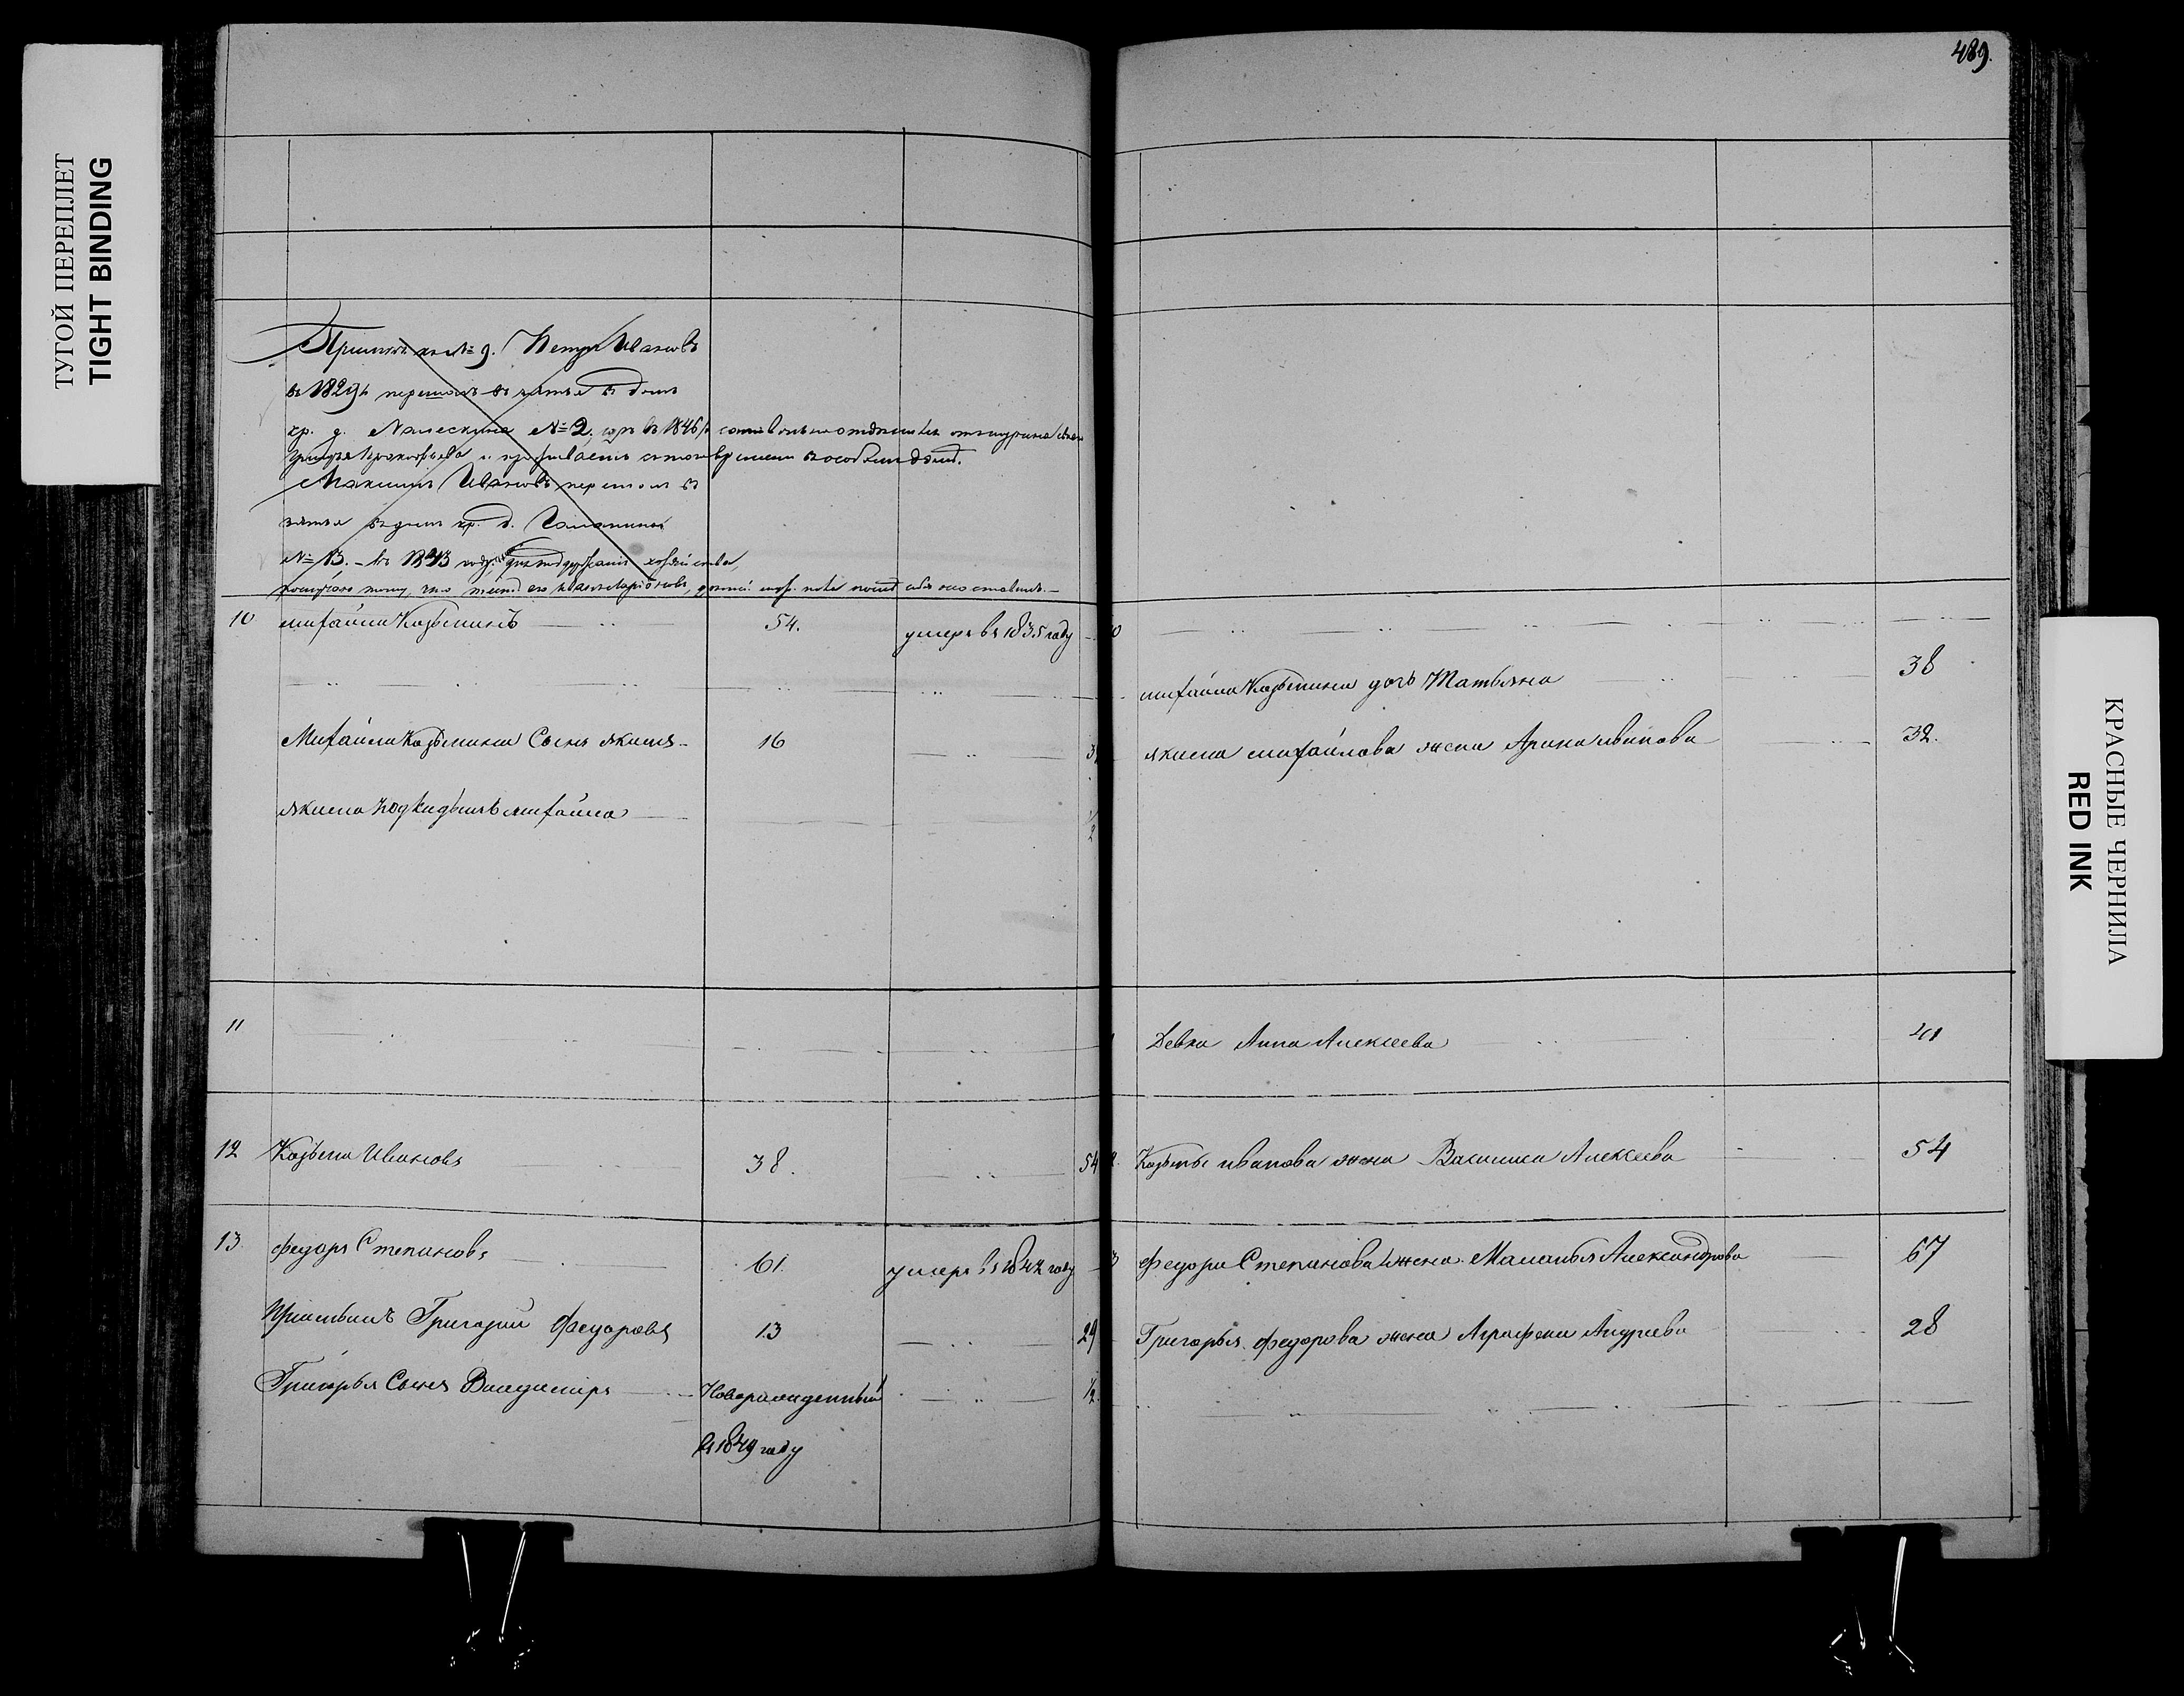 ТУГОЙ ПЕРЕПЛЕТ
TIGHT BINDING
489.
№ 9. Петръ Ивановъ
въ 1829 перешолъ въ зятья въ домъ
кр. д. № 2, въ 1846
Григорья Прокофьева и проживаетъ въ особомъ домѣ.
Максимъ Ивановъ перешолъ въ
зятья въ домъ кр. д.
№ 13. въ 1843 году
потому, что
10 михайла Козьминъ 54. умеръ въ 1835 году
михайла Козьмина дочь Татьяна 38
Михайлы Козьмина Сынъ якимъ 16
якима михайлова жена Арина иванова 32.
якима подкидышъ михайла
11
Девка Анна Алексеева 41
12 Козьма Ивановъ 38. 54
Козьмы иванова жена Василиса Алексеева 54
13 федоръ Степановъ 61. умеръ въ 1842 году
Федора Степанова жена Маланья Александрова 67
Григорий Федоровъ 13 29
Григорья федорова жена Аграфена Андреева 28
Григорья Сынъ Владимиръ Новорожденный 1/2
въ 1849 году
КРАСНЫЕ ЧЕРНИЛА
RED INK